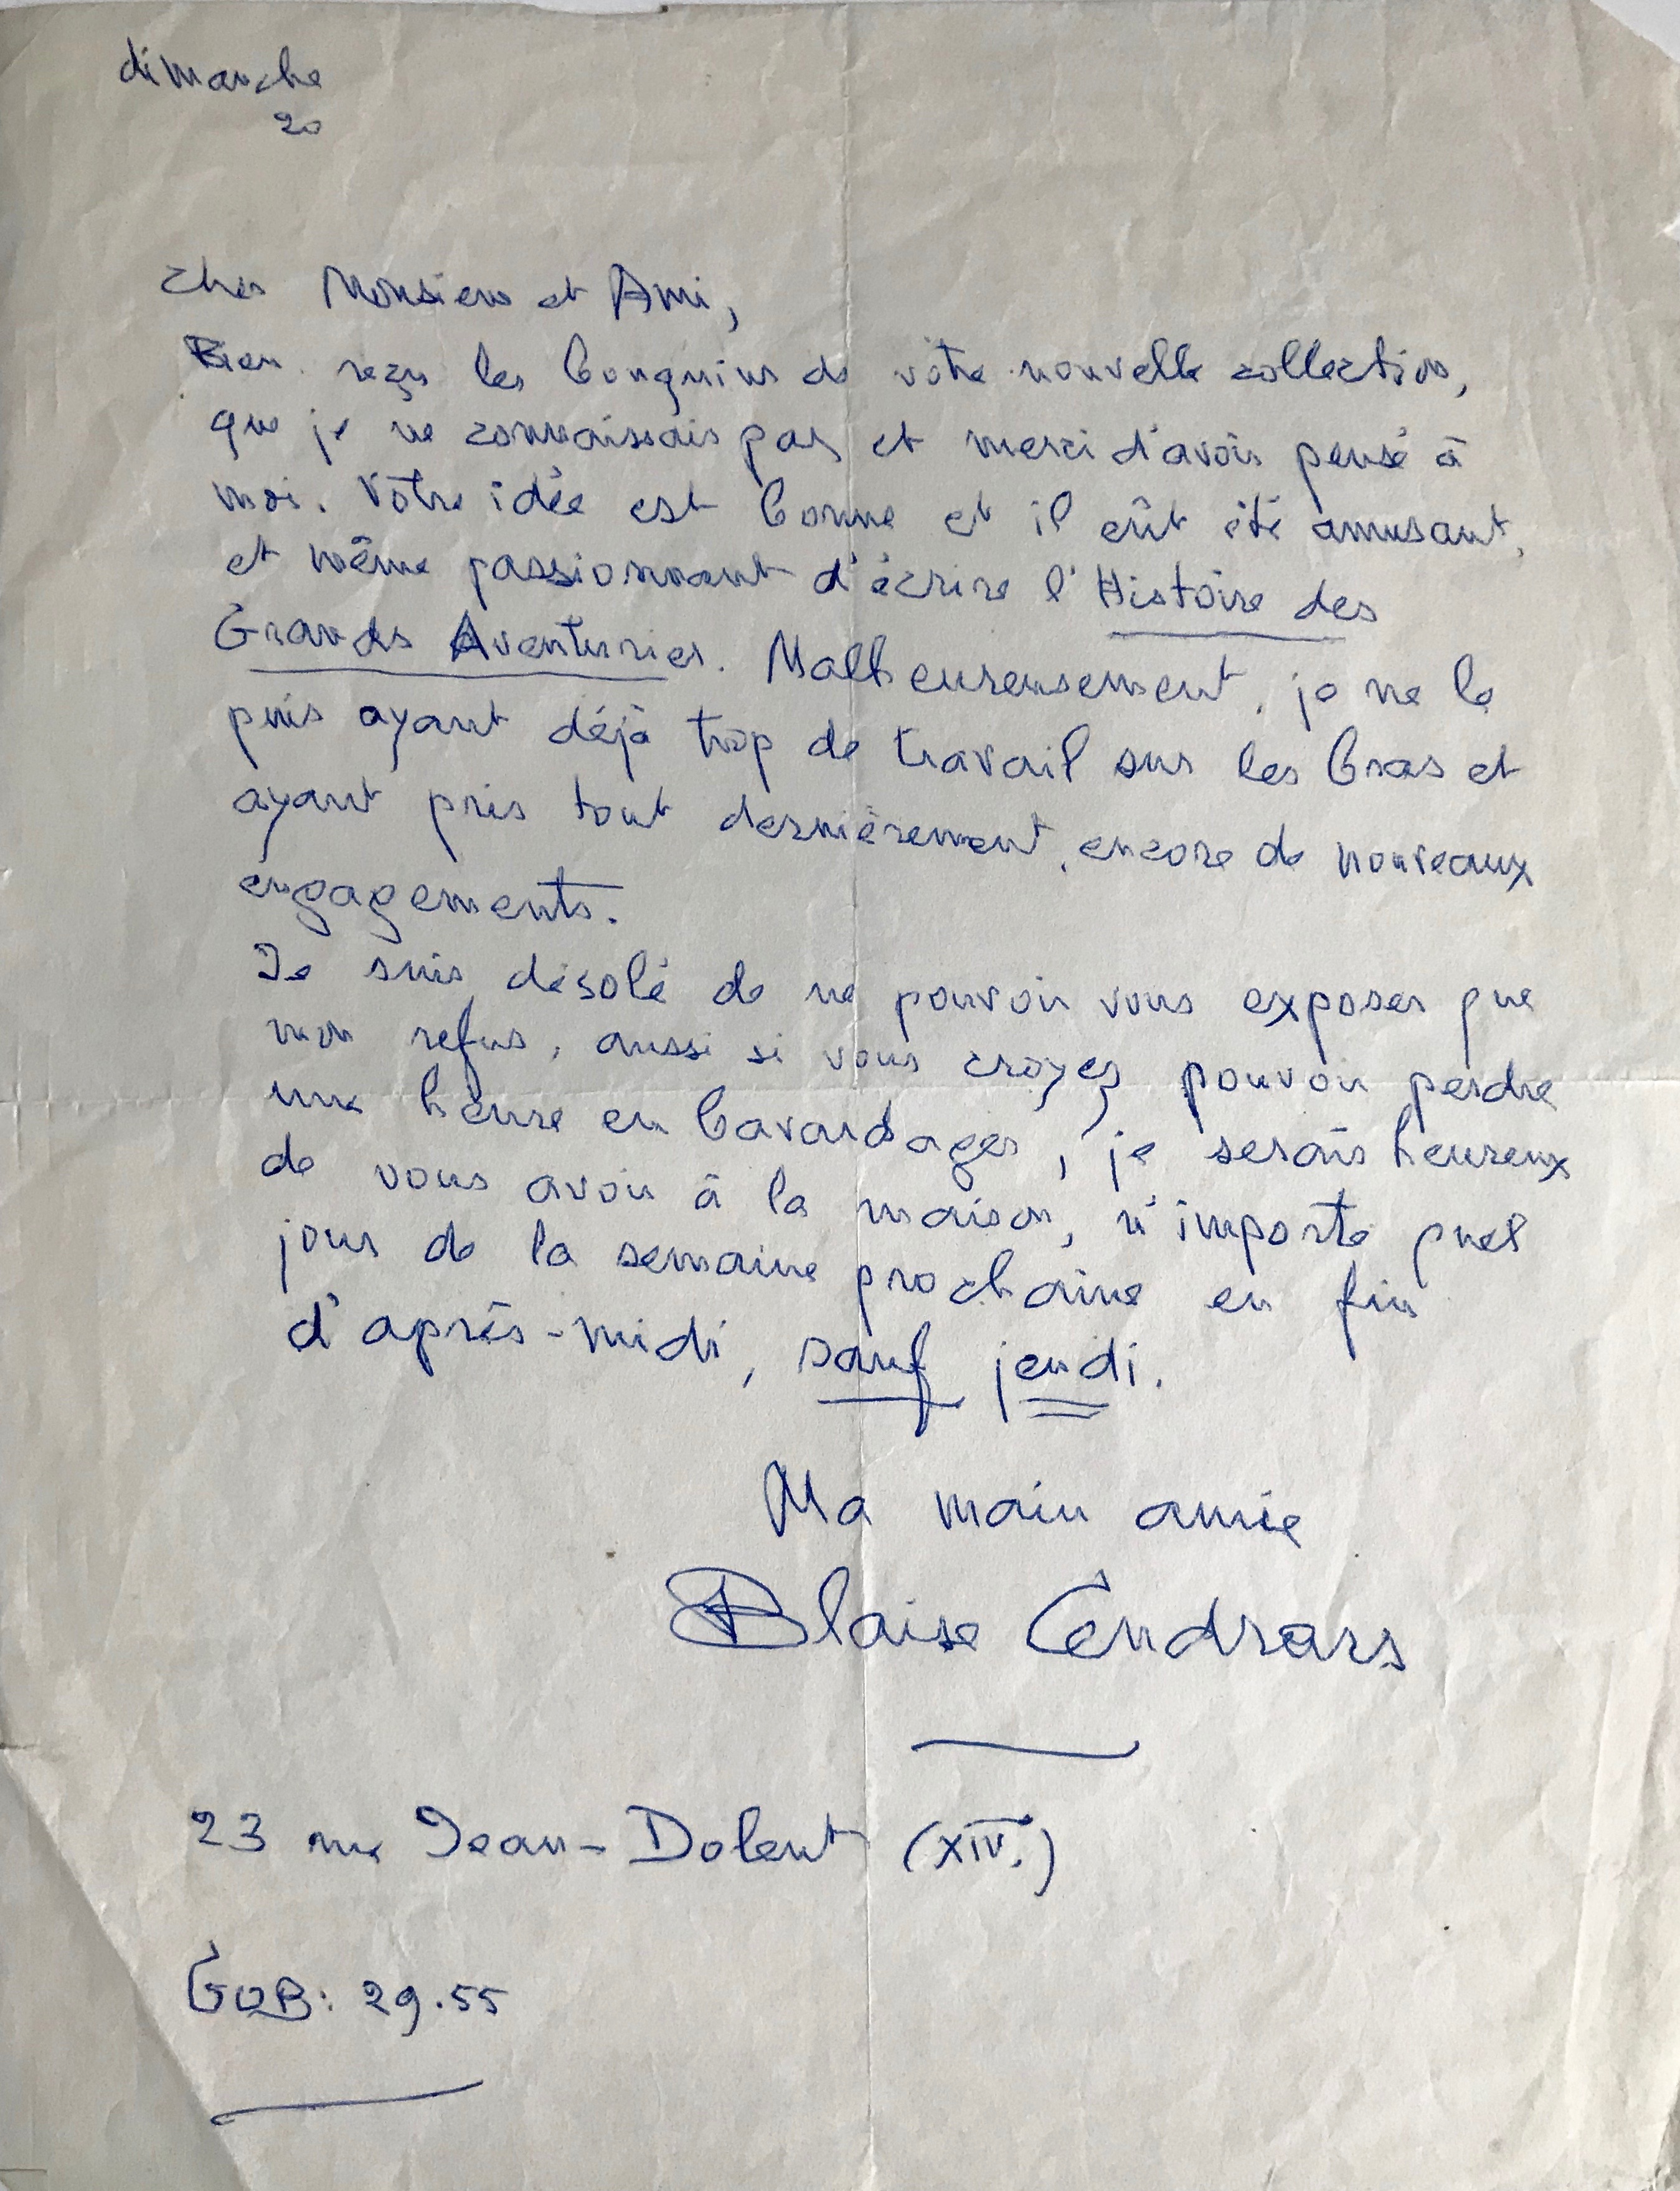 dimanche
20
Cher Monsieur et Ami,
Bien reçu les bouquins de vôtre nouvelle collection,
que je ne connaissais pas et merci d'avoir pensé à
moi. Vôtre idée est bonne et il eût été amusant,
et même passionnant d'écrire l'Histoire des
Grands Aventuriers. Malheureusement, je ne le
puis ayant déjà trop de travail sur les bras et
ayant pris tout dernièrement, encore de nouveaux
engagements.
Je suis désolé de ne pouvoir vous exposer que
mon refus, aussi si vous croyez pouvoir perdre
une heure en bavardages, je serais heureux
de vous avoir à la maison, n'importe quel
jour de la semaine prochaine en fin
d'après-midi, sauf jeudi.
Ma main amie
Blaise Cendrars
23 rue Jean-Dolent (XIV.)
GOB: 29.55